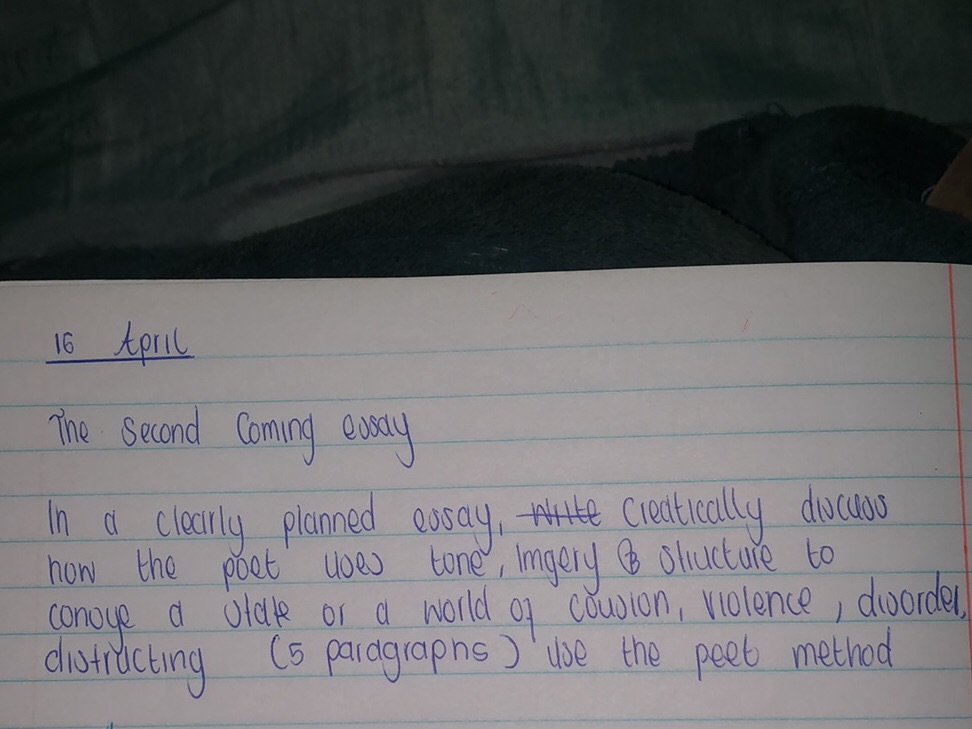 16 April
The Second Coming essay
In a clearly planned essay, Write creatically discuss
how the poet uses tone, Imgery & structure to
conveye a state or a world of cousion, violence, disorder,
distracting (5 paragraphs) use the peet method